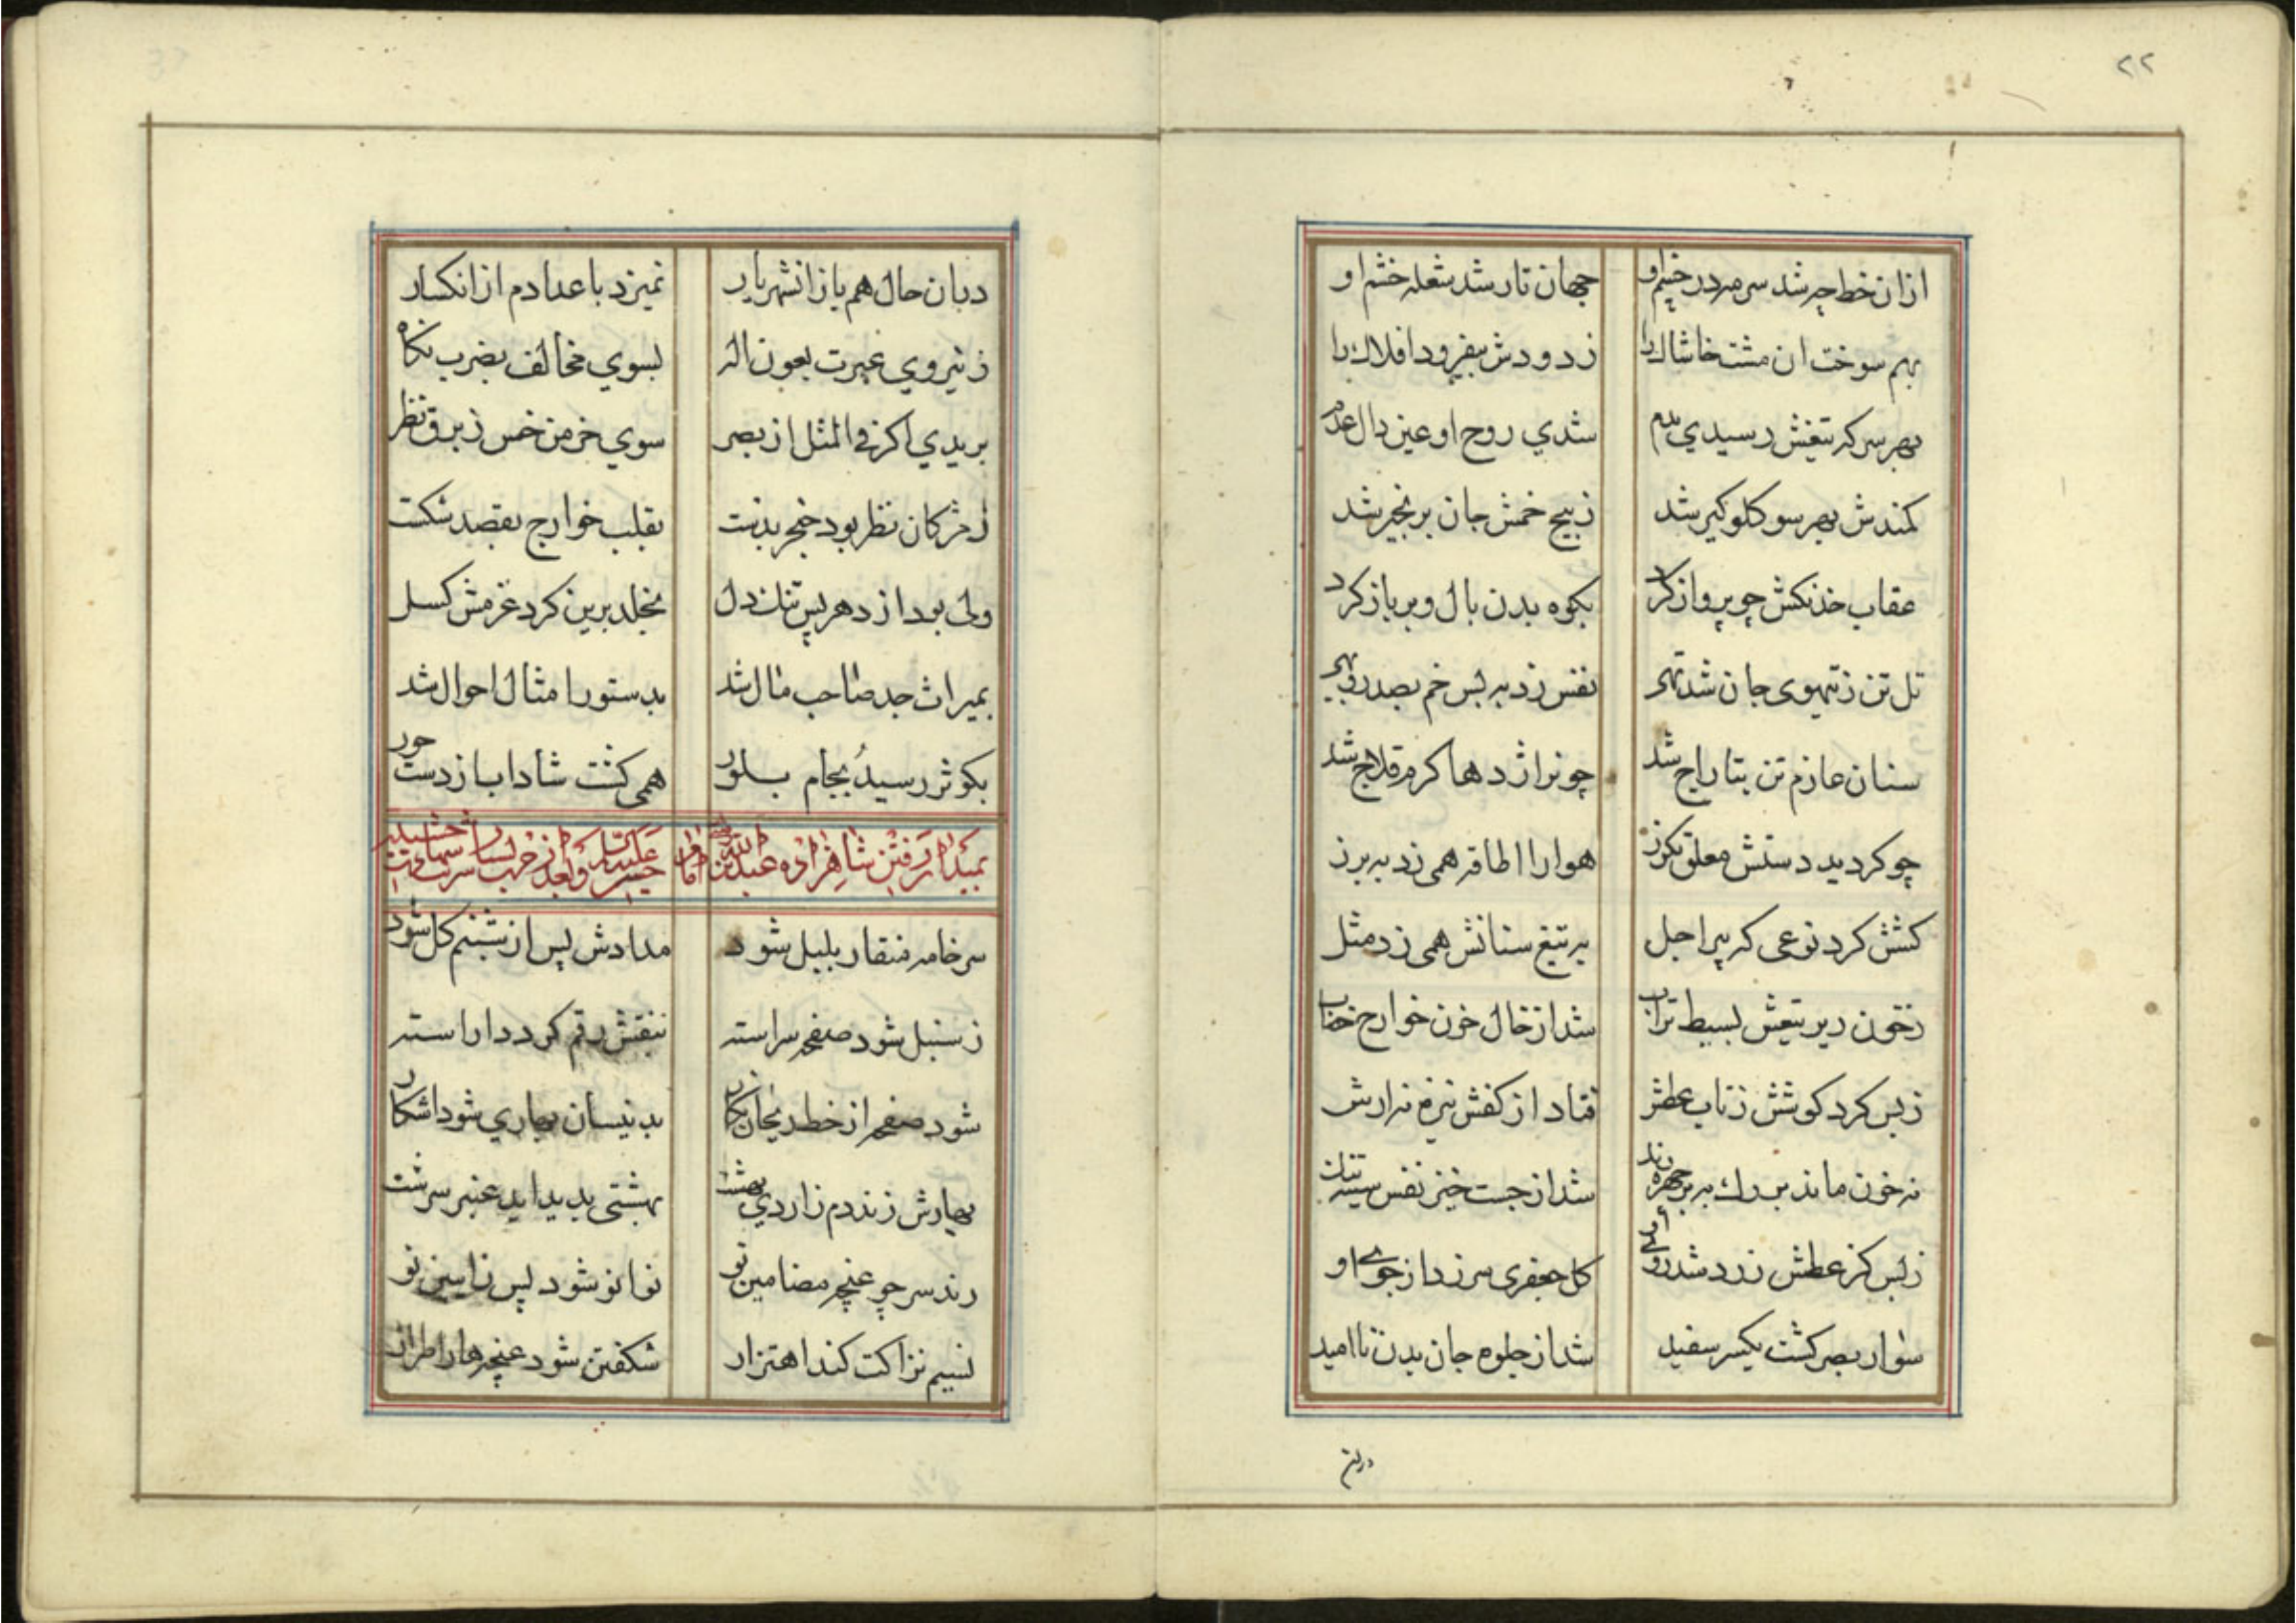 ۲۲
ازان خط چه شد سرمه در چشم او جهان تار شد شعله خشم او
بهم سوخت ان مشت خاشاك را زدودش بیفزود افلاك را
بهر سر که تیغش رسیدی بدم شدي روح او عین دال عدم
کمندش بهر سو کلوکیر شد ز پیچ خمش جان بزنجیر شد
عقاب خدنکش چو پرواز کرد بکوه بدن بال و پر باز کرد
تل تن ز تیهوی جان شد تهی نفس زد به لس خم بصد روبهی
سنان عازم تن بتاراج شد چونر اژدها کرم قلاج شد
چو کردید دستش معلق بکرز هوا را اطاقه همی زد به برز
کشش کرد نوعی که پیر اجل به تیغ سنانش همی زد مثل
زخون زیر تیغش بسیط تراب شد از خال خون خوارج خضاب
زبس کرد کوشش زتاب عطش فتاد از کفش نیزه نه ارش
نه خون ماند بر رك نه بر چهره رنك شد از جست خیز نفس سینه تنك
زبس کز عطش زرد شد روی او کل جعفری سر زد از جوی او
سواد بصر کشت یکسر سفید شد از جلوه جان بدن ناامید
دران
دران حال هم باز انشهریار نمیزد باعدا دم از انکسار
ز نیروي غیرت بعون اله بسوي مخالف بضرب نکاه
بریدي اکر في المثل از بصر سوي خرمن خس ز برق نظر
ز مژکان نظر بود خنجر بدست بقلب خوارج بقصد شکست
ولی بود از دهر پس تنك دل بخلد برین کرد عزمش کسل
بمیراث جد صاحب مال شد بدستور امثال احوال شد
بکوثر رسید بجام بلور همی کشت شاداب از دست حور
بمیدان رفتن شاهزاده عبدالله بن امام حسن علیه السلام و بعد از حرب بسیار شربت شهادت چشیدن
سر خامه منقار بلبل شود مدادش پس از شبنم کل شود
ز سنبل شود صفحه سراسته بنقش رقم کردد اراسته
شود صفحه از خط ریحان نکار به نیسان بهاري شود اشکار
بهارش زند دم ز اردي بهشت بهشتی پدید اید عنبر سرشت
زند سر چو غنچه مضامین نو نوا نو شود پس ز ایین نو
نسیم نزاکت کند اهتزار شکفتن شود غنچه ها را طراز